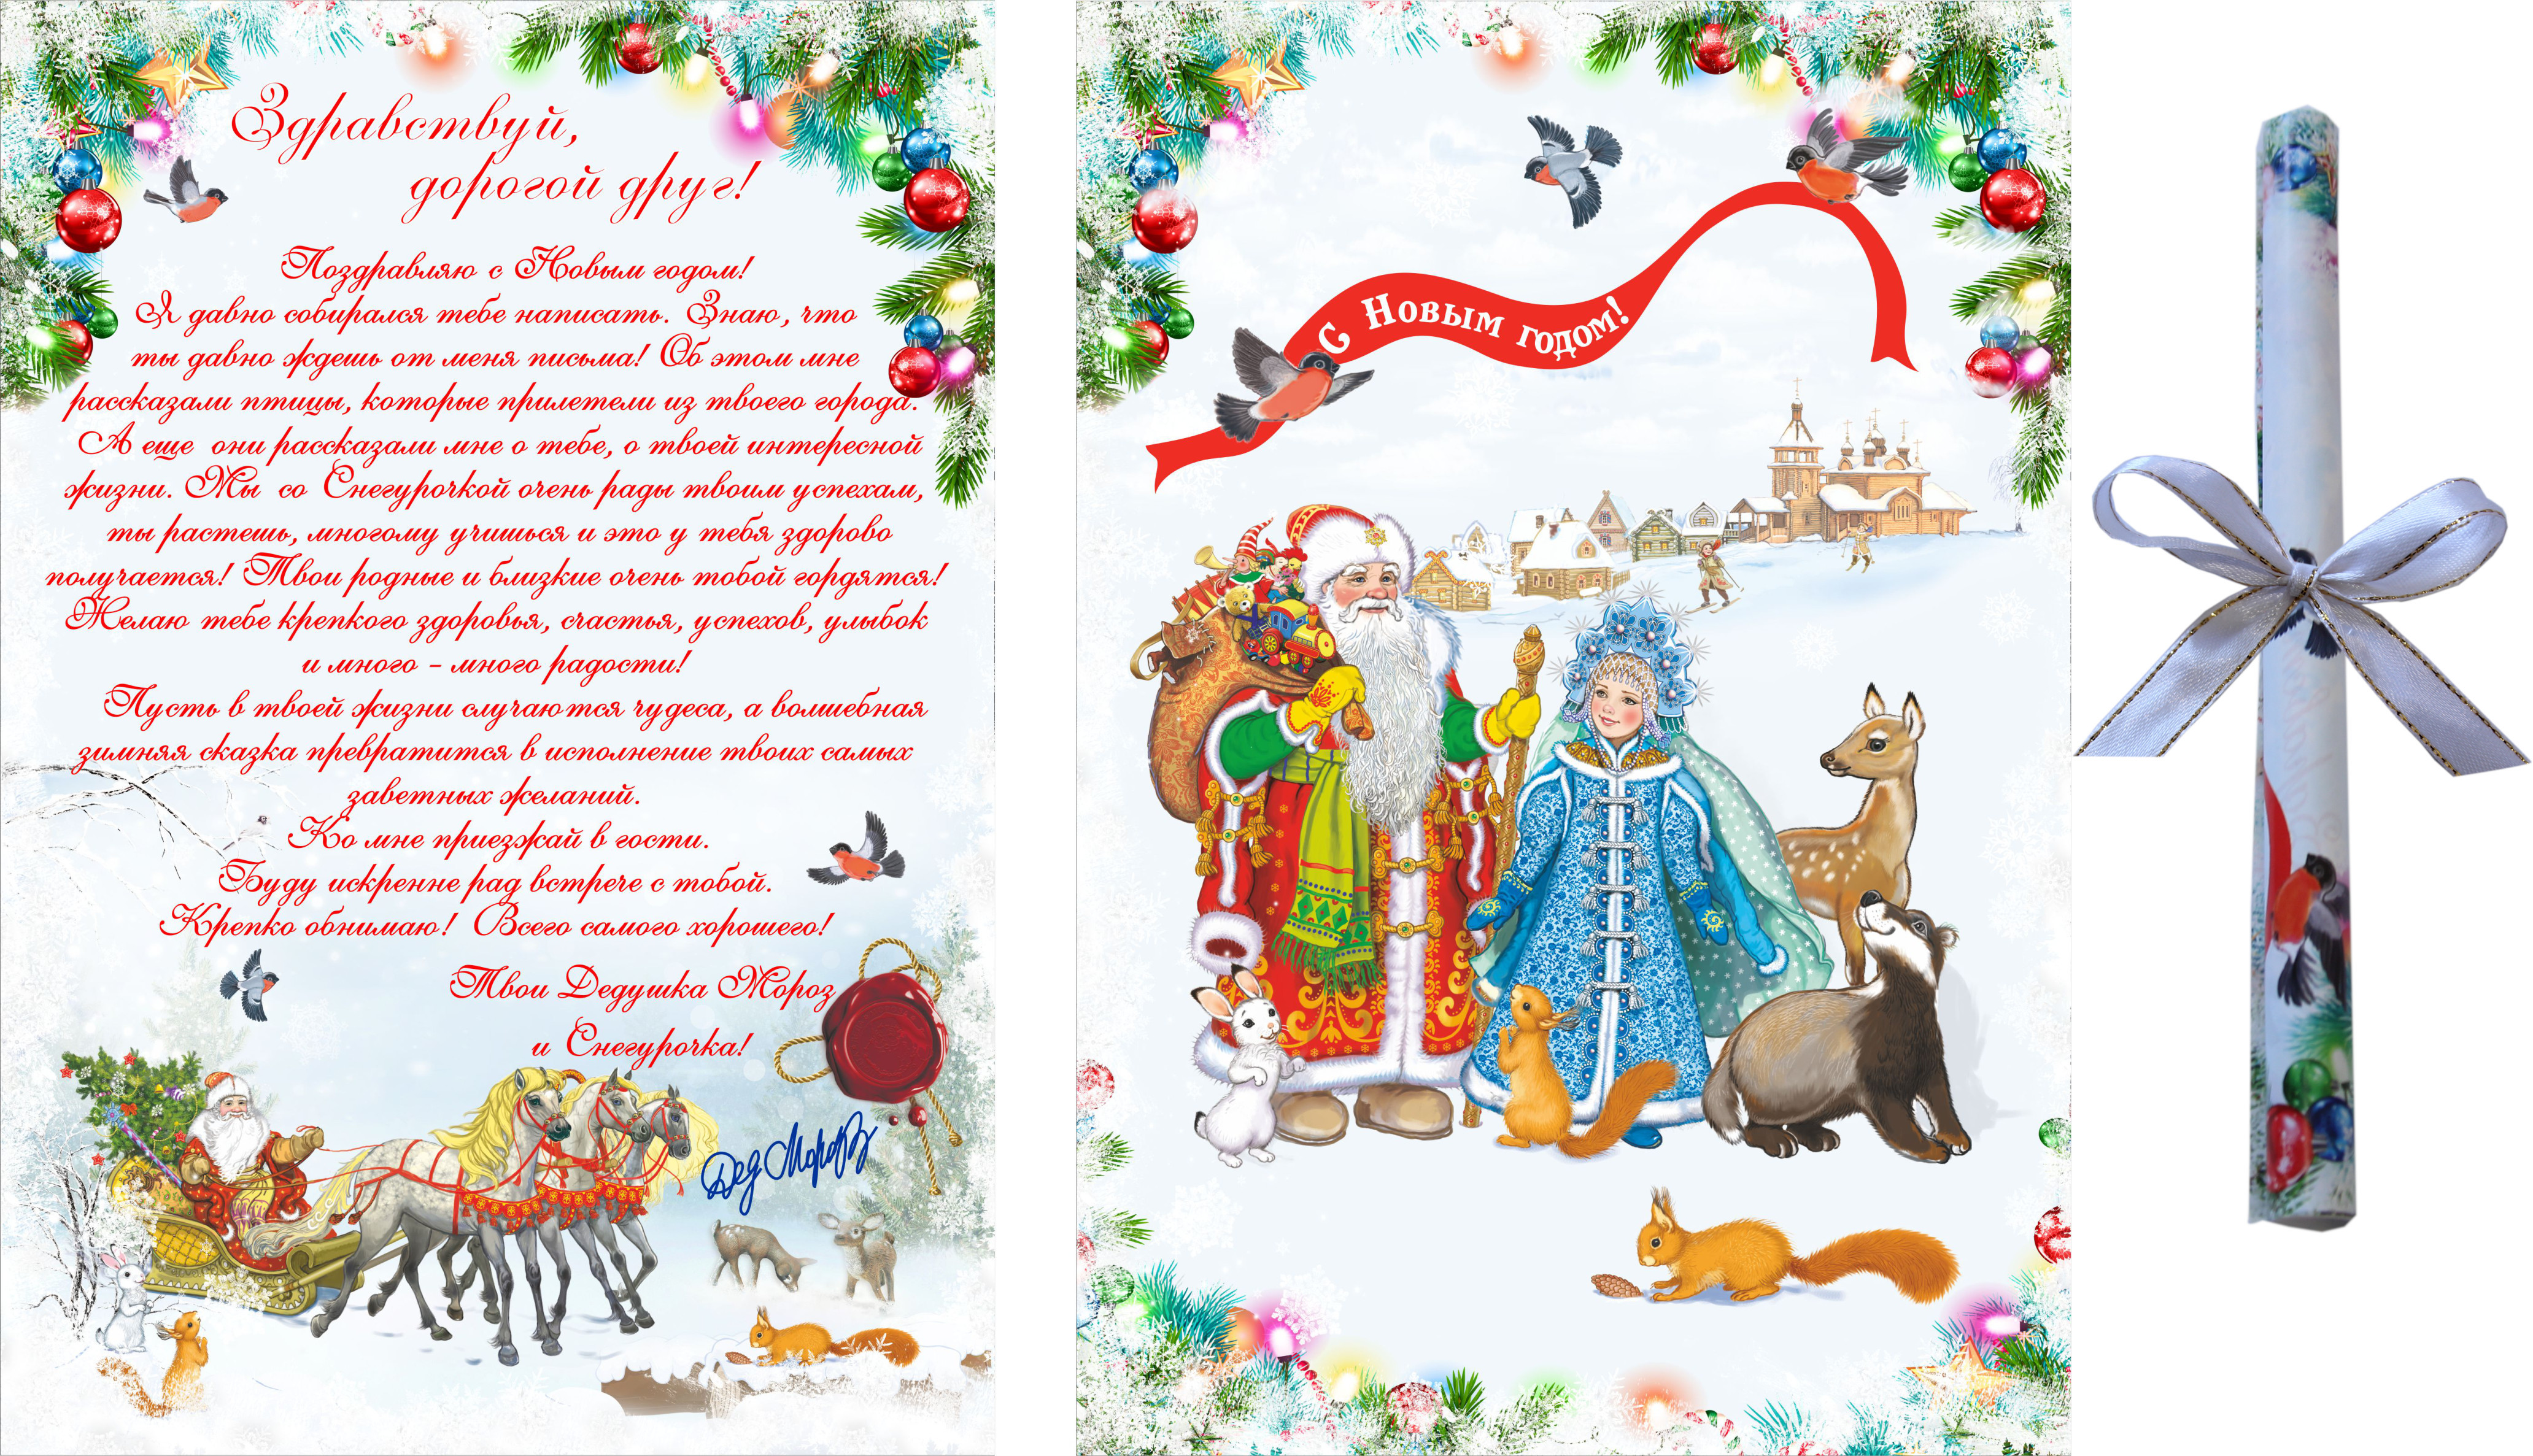 Здравствуй,
дорогой друг!
Поздравляю с Новым годом!
Я давно собирался тебе написать. Знаю, что
ты давно ждешь от меня письма! Об этом мне
рассказали птицы, которые прилетели из твоего города.
А еще они рассказали мне о тебе, о твоей интересной
жизни. Мы со Снегурочкой очень рады твоим успехам,
ты растешь, многому учишься и это у тебя здорово
получается! Твои родные и близкие очень тобой гордятся!
Желаю тебе крепкого здоровья, счастья, успехов, улыбок
и много - много радости!
Пусть в твоей жизни случаются чудеса, а волшебная
зимняя сказка превратится в исполнение твоих самых
заветных желаний.
Ко мне приезжай в гости.
Буду искренне рад встрече с тобой.
Крепко обнимаю! Всего самого хорошего!
Твои Дедушка Мороз
и Снегурочка!
Дед Мороз
С Новым годом!